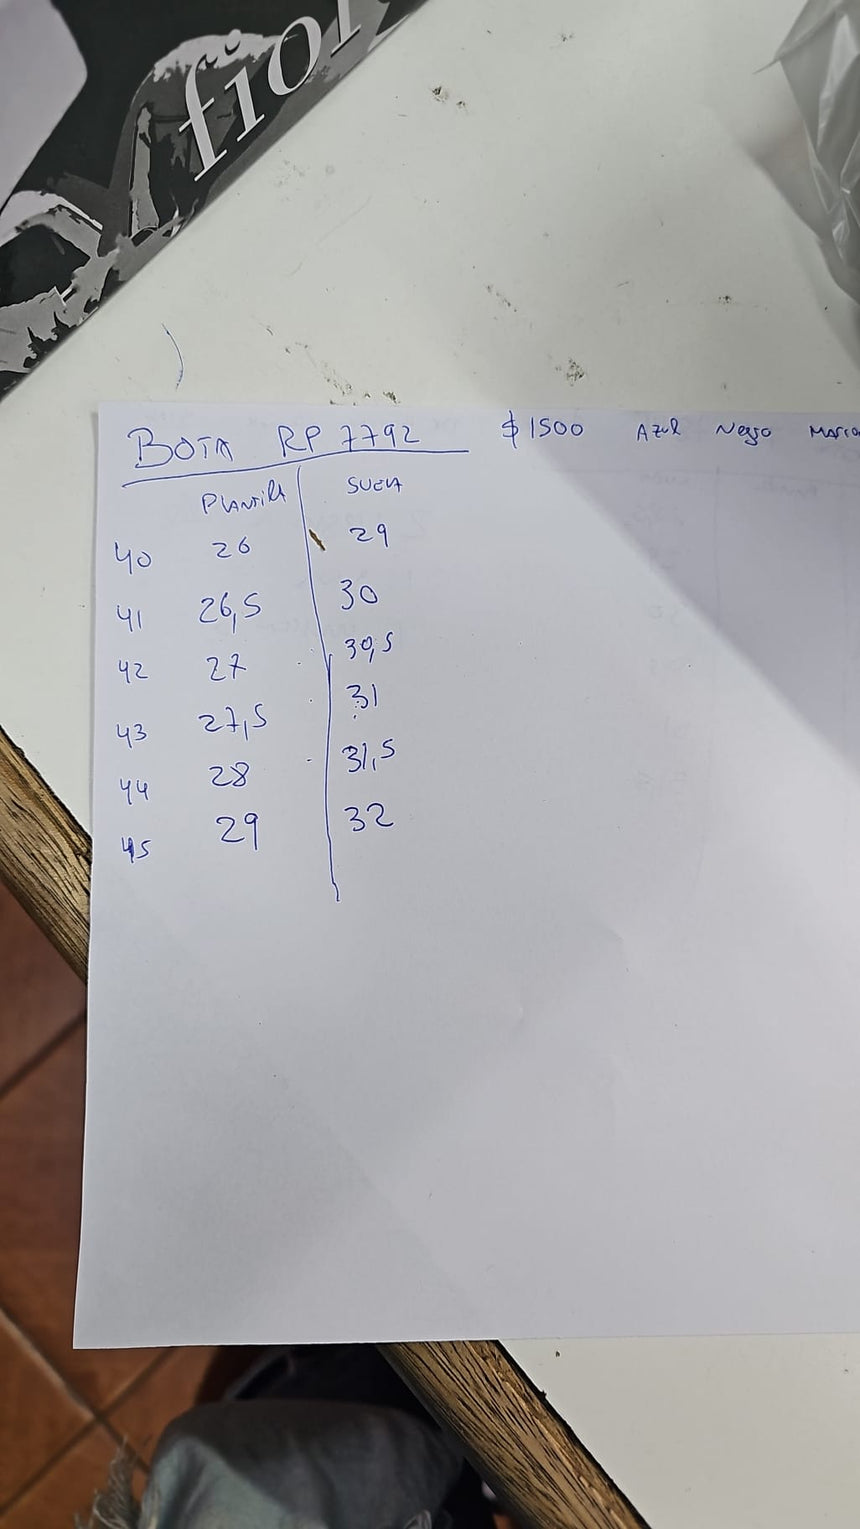 fior
BOTA RP 7792 $1500 Azul Negro Marro
PLANTIllA SUELA
40 26 29
41 26,5 30
42 27 30,5
43 27,5 31
44 28 31,5
45 29 32